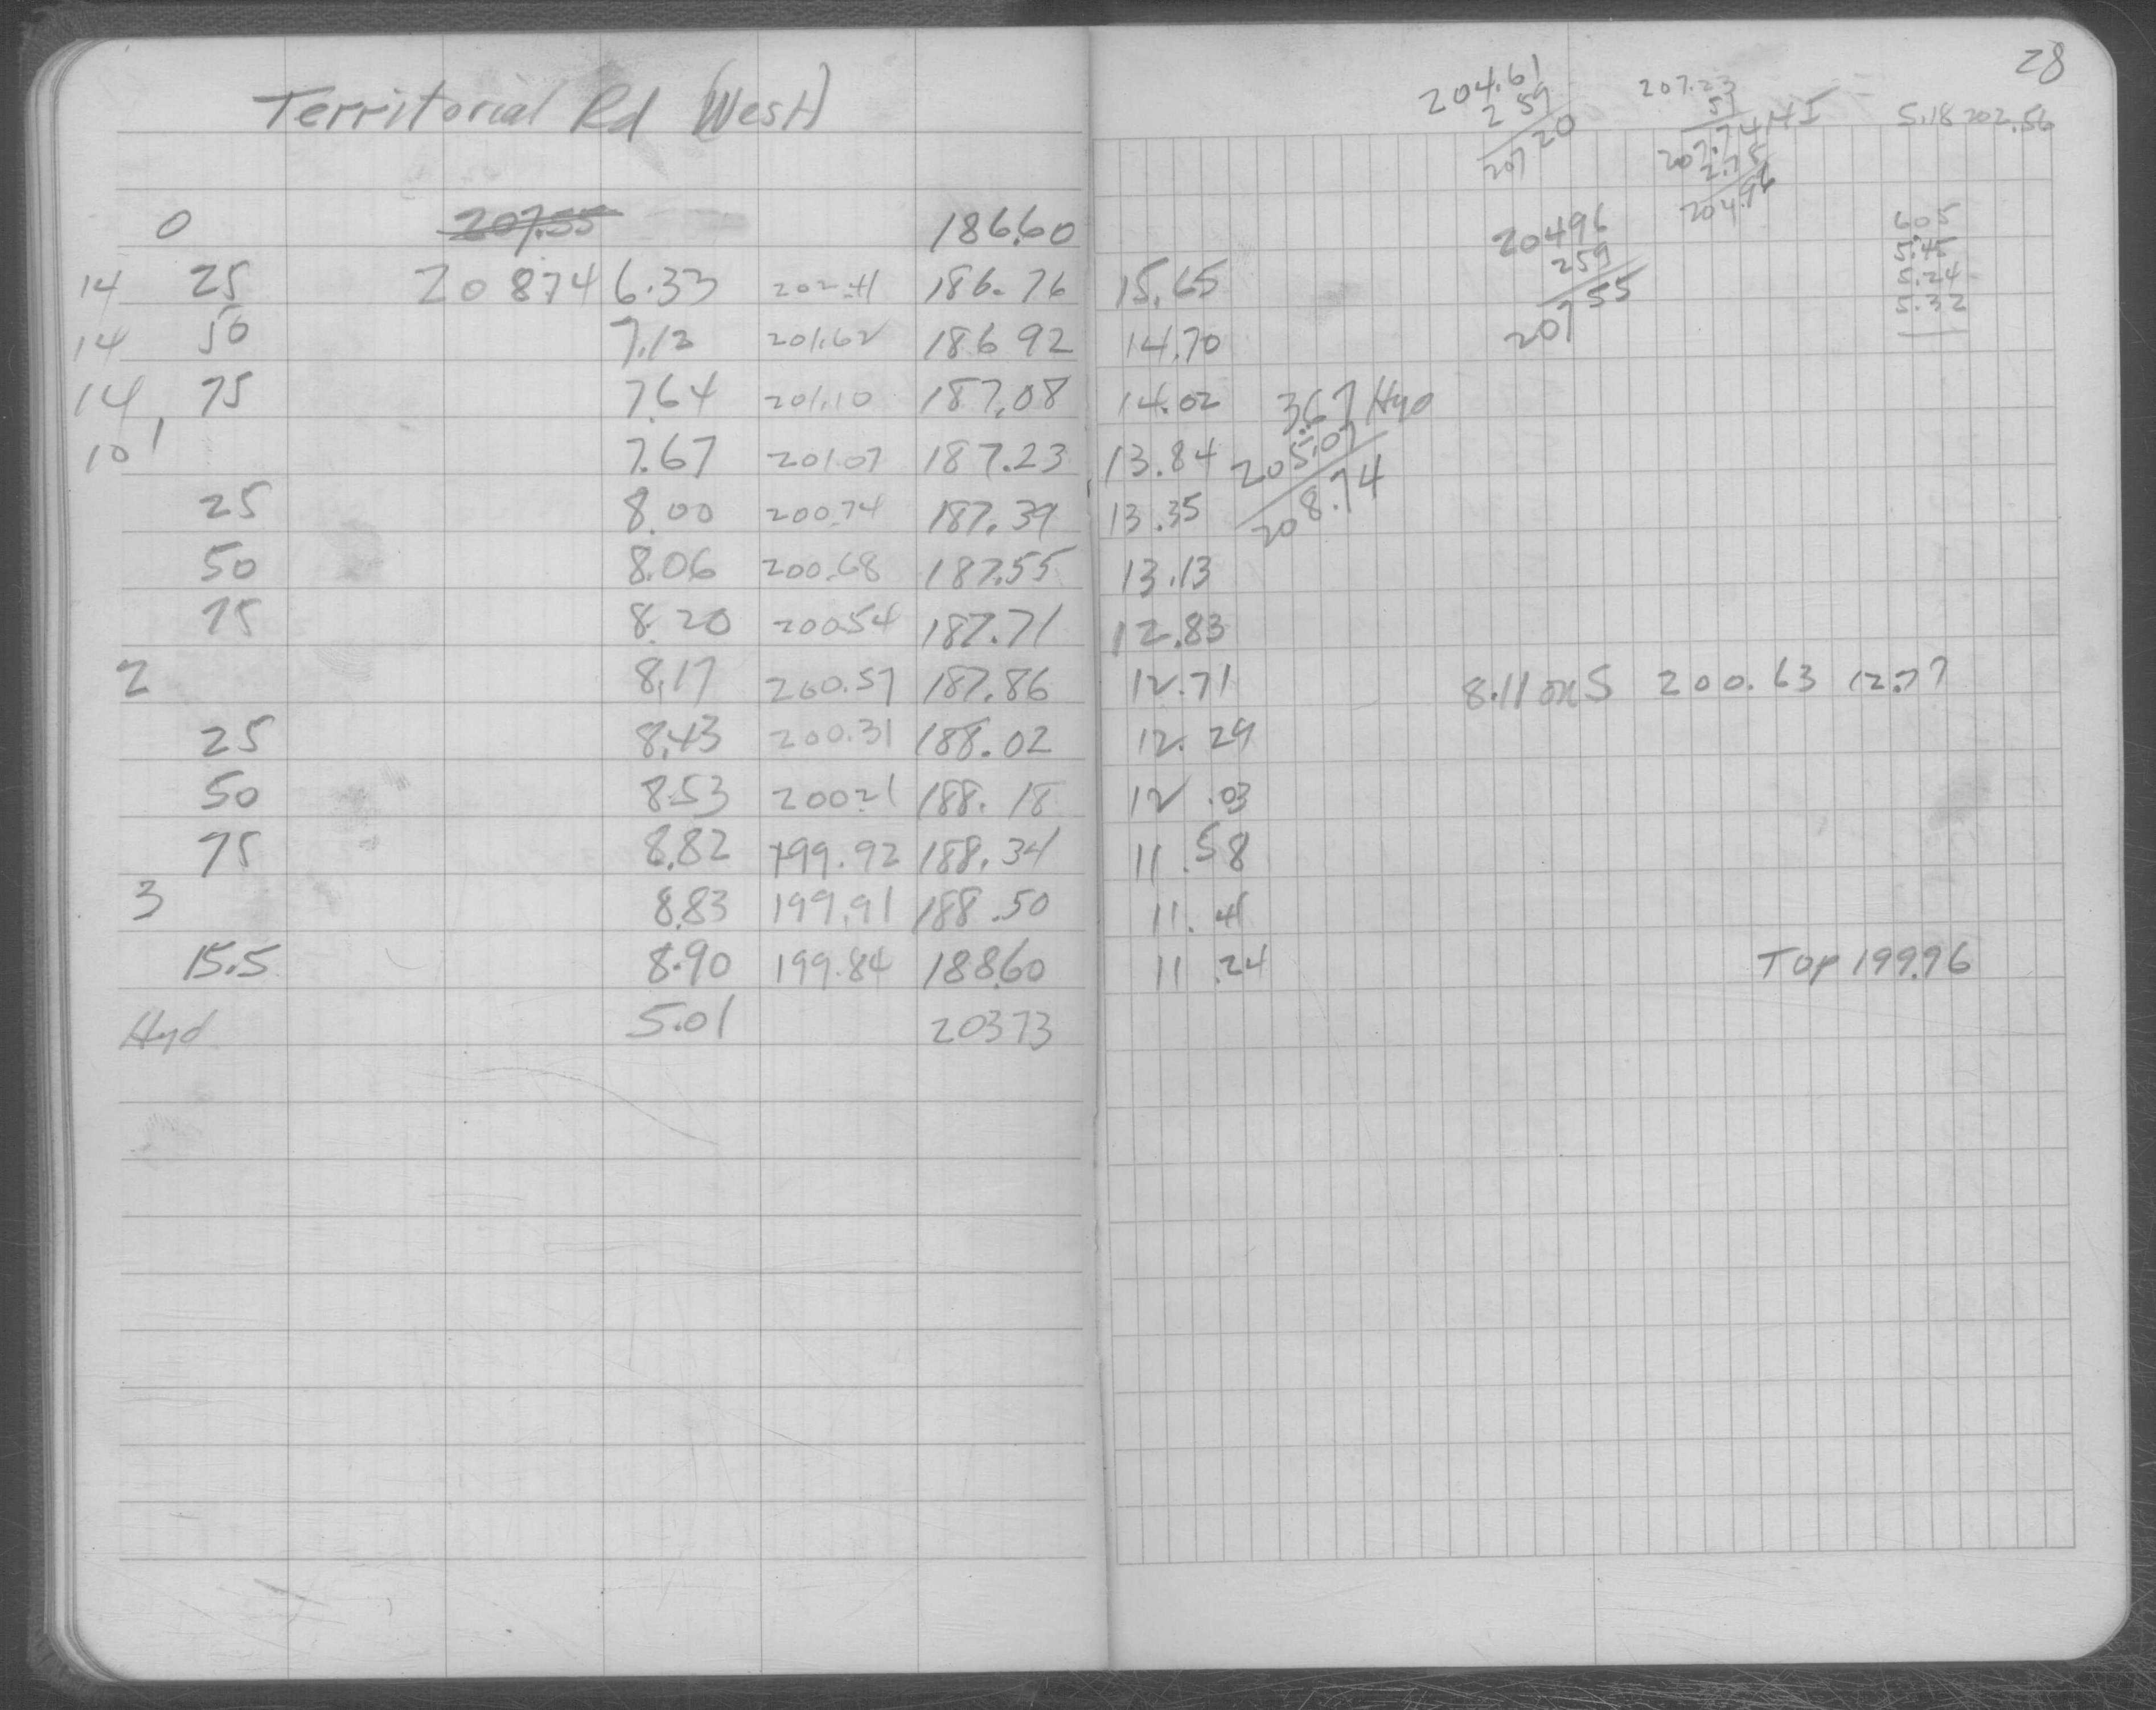 28
Territorial Rd (West)
204.61
2 59
207 20
207.23
51
207.74 HI
2.78
204.96
5.18 202.56
0 207.55 186.60
20496
259
207 55
605
5.45
5.24
5.32
14 25 208 74 6.33 202.41 186.76 15.65
14 50 7.12 201.62 186 92 14.70
14 75 7.64 201.10 187.08 14.02
3.67 Hyd
205.07
208.74
10' 1 7.67 201.07 187.23 13.84
25 8.00 200.74 187.39 13.35
50 8.06 200.68 187.55 13.13
75 8.20 200.54 187.71 12.83
2 8.17 200.57 187.86 12.71 8.11 on S 200.63 12.77
25 8.43 200.31 188.02 12.29
50 8.53 200.21 188.18 12.03
75 8.82 199.92 188.34 11.58
3 8.83 199.91 188.50 11.41
15.5 8.90 199.84 188.60 11.24 Top 199.96
Hyd 5.01 203 73